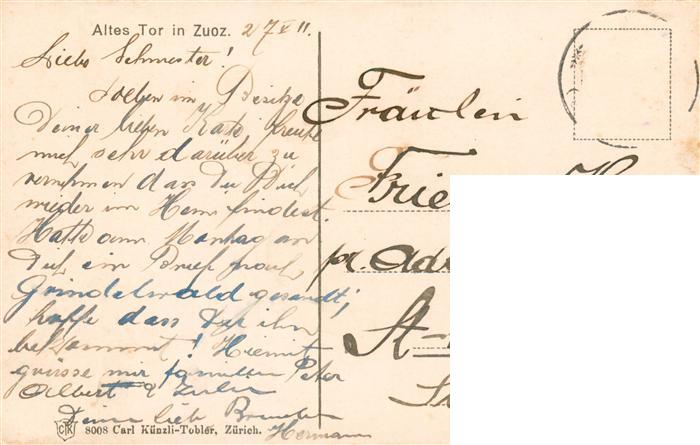 Altes Tor in Zuoz. 27 V 11.
Liebe Schwester!
Soeben im Besitze
Deiner lieben Karte, freute
mich sehr darüber zu
vernehmen dass Du Dich
wieder im Heim findest.
Hatte am Montag an
Dich ein Brief nach
Grindelwald gesandt;
hoffe dass Du ihn
bekommst! Hiemit
grüsse mir familien Peter
Albert &
Dein lieb Bruder
Hermann
CK 8008 Carl Künzli-Tobler, Zürich.
Fräulein
Frie
pr. Adr
St-